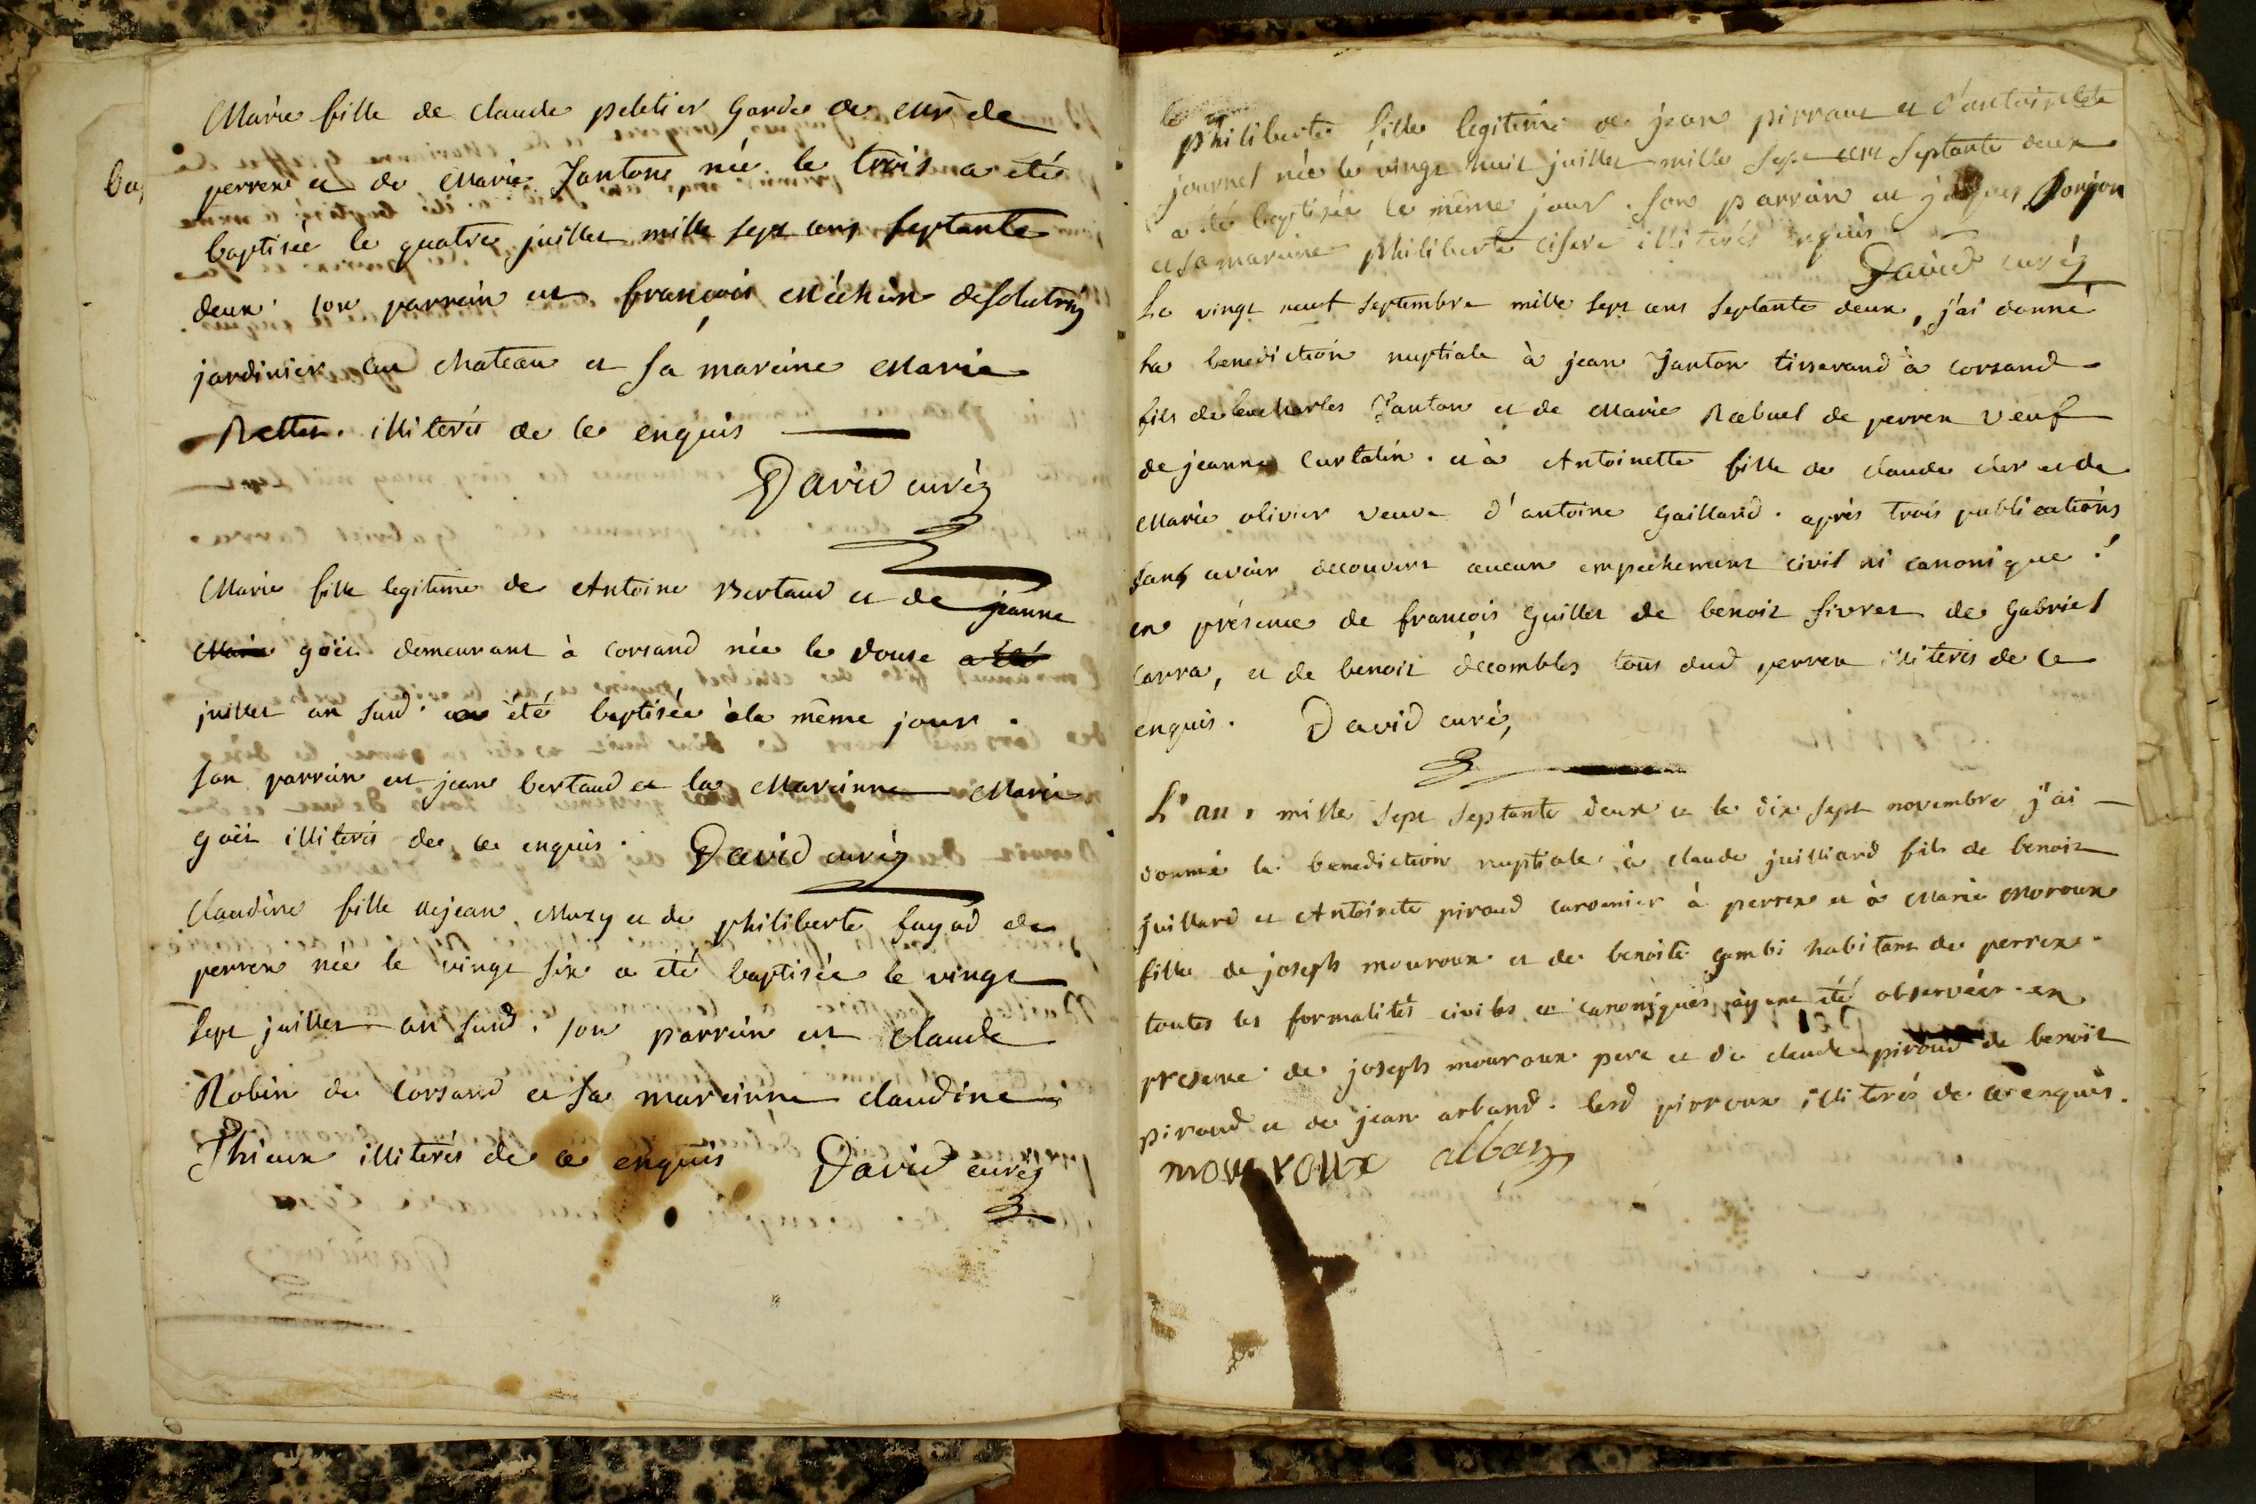 Marie fille de claude peletier garde de mr de
perrex et de Marie Janton née le trois a été
baptisée le quatre juillet mille sept cens septante
deux. son parrain est françois Méchin de solutry
jardinier au chateau et sa mareine Marie
Rette. illiterés de ce enquis
David curé
Marie fille legitime de Antoine Bertaud et de jeanne
goës demeurant à corsand née le douse
juillet an susd. a été baptisée le même jour.
son parrain est jean bertaud et la Mareinne Marie
goës illiterés de ce enquis. David curé
Claudine fille de jean Mury et de philiberte fayad de
perrex née le vingt six a été baptisée le vingt
sept juillet an susd. son parrain est Claude
Robin de Corsand et sa mareinne claudine
Thieux illiterés de ce enquis David curé
philiberte fille legitime de jean pirraud et d'antoinete
journet née le vingt huit juillet mille sept cens septante deux
a été baptisée le même jour. son parrain est jaques Donjon
et sa mareine philiberte cisere illiterés enquis
David curé
Le vingt neuf septembre mille sept cens septante deux, j'ai donné
la benediction nuptiale à jean Janton tisserand à corsand
fils de feu charles Janton et de Marie Rebuel de perrex veuf
de jeanne Curtalin. et à Antoinette fille de claude cler et de
Marie olivier veuve d'antoine gaillard. après trois publications
sans avoir decouvert aucun empechement civil ni canonique.
en présence de françois guillet de benoit sivret de gabriel
carra, et de benoit décombles tous dud perrex illiterés de ce
enquis. David curé,
L'an mille sept septante deux et le dix sept novembre j'ai
donné la benediction nuptiale à claude juilliard fils de benoit
juillard et Antoinete piroud cordonnier à perrex et à Marie Moroux
fille de joseph mouroux et de benoite gambi habitant de perrex.
toutes les formalités civiles et canoniques ayant été observées. en
presence de joseph mouroux pere et de claude piroud de benoit
piroud et de jean arband. lesd pirroux illiterés de ce enquis.
mouroux alban